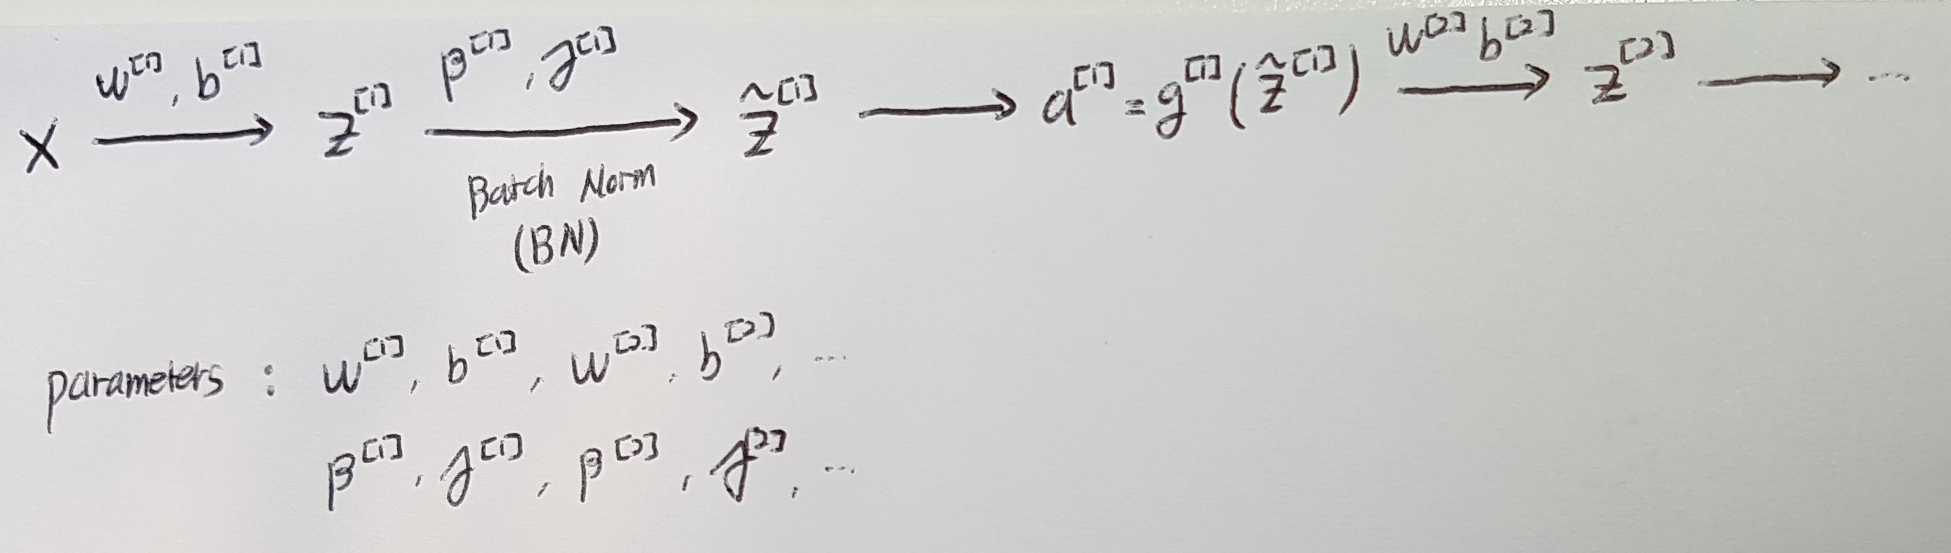 X ⟶ z^[1] ⟶ z̃^[1] ⟶ a^[1] = g^[1](z̃^[1]) ⟶ z^[2] ⟶ ...
w^[1], b^[1]
β^[1], γ^[1]
w^[2] b^[2]
Batch Norm
(BN)
parameters : w^[1], b^[1], w^[2], b^[2], ...
β^[1], γ^[1], β^[2], γ^[2], ...